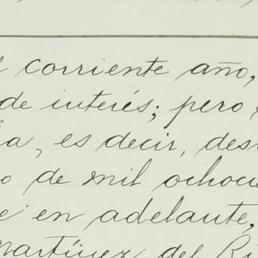 corriente año,
de interés; pero
a, es decir, des
o de mil ochoci
e en adelante,
Martínez del Ri